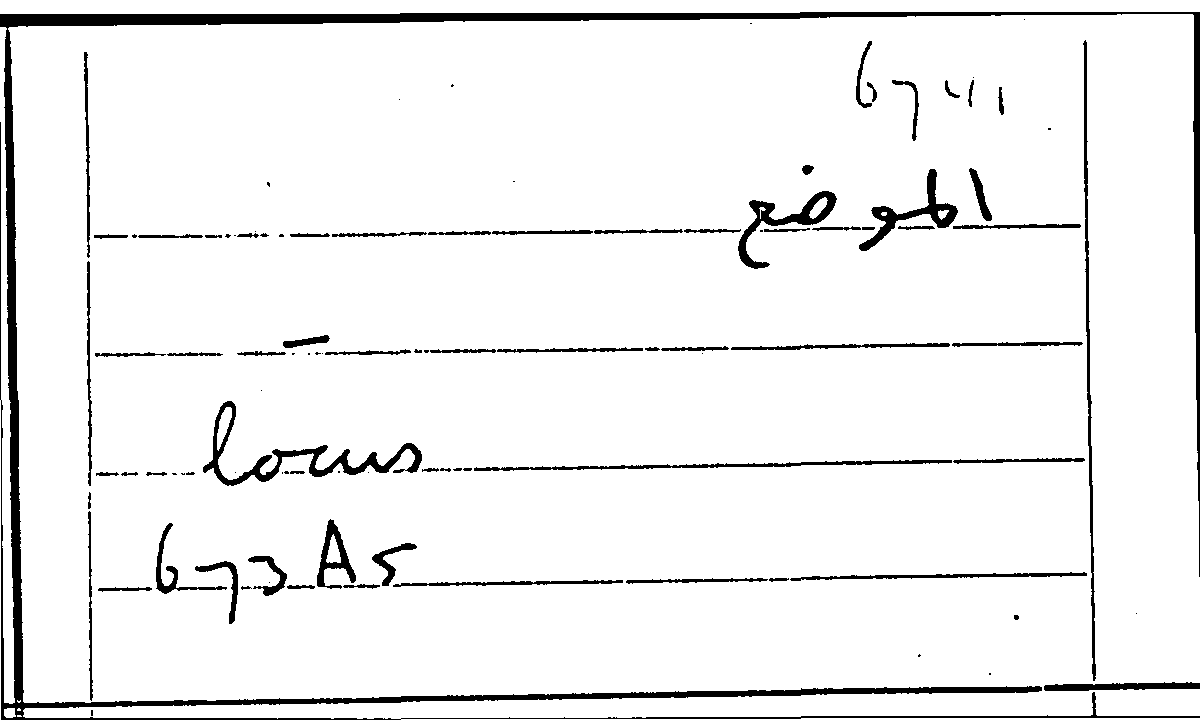 6741
الموضع
–
locus
673A5